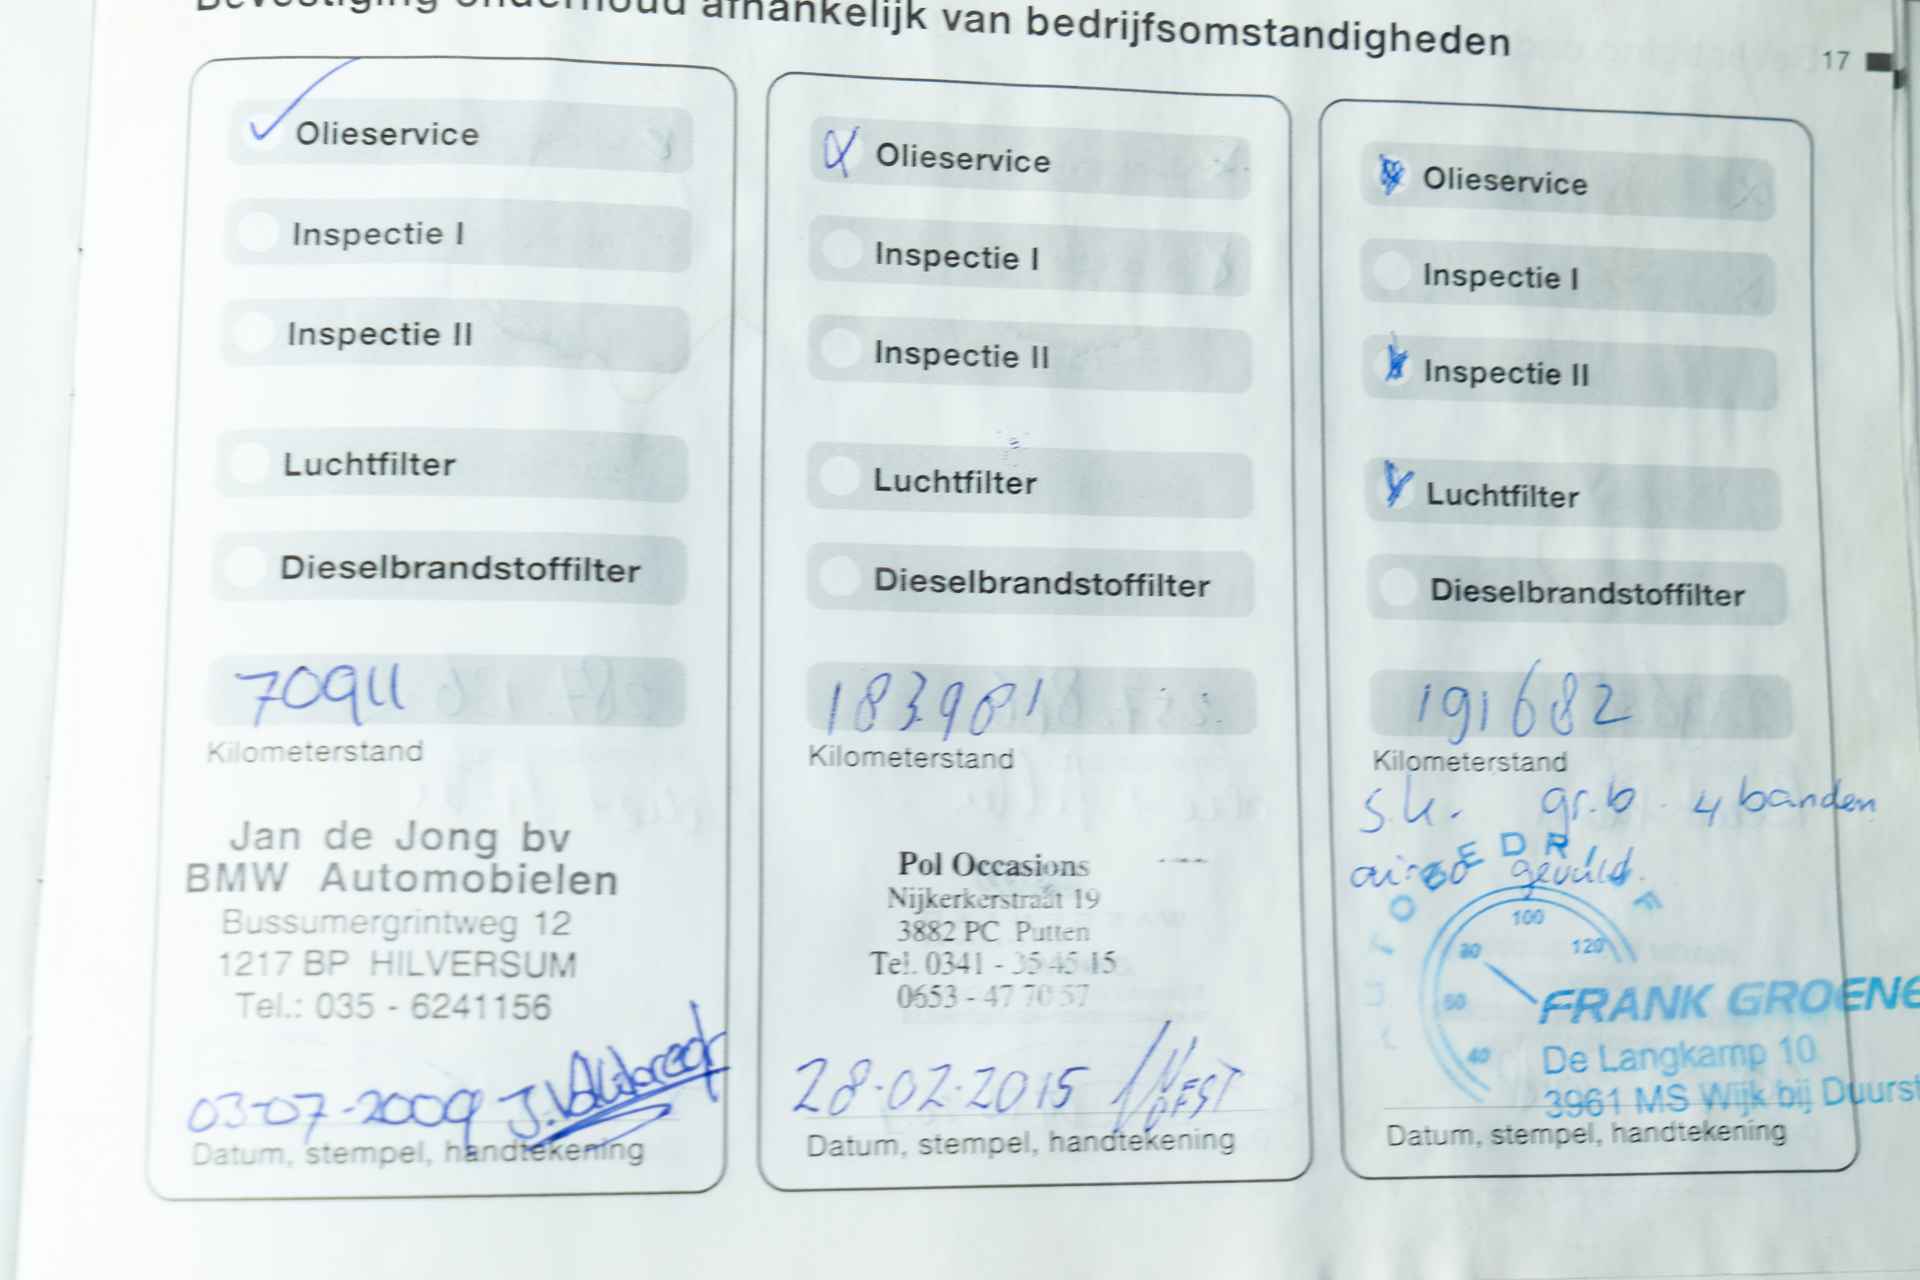 Bevestiging onderhoud afhankelijk van bedrijfsomstandigheden
17
Olieservice
Inspectie I
Inspectie II
Luchtfilter
Dieselbrandstoffilter
70911
Kilometerstand
Jan de Jong bv
BMW Automobielen
Bussumergrintweg 12
1217 BP HILVERSUM
Tel.: 035 - 6241156
03-07-2009
Datum, stempel, handtekening
Olieservice
Inspectie I
Inspectie II
Luchtfilter
Dieselbrandstoffilter
183981
Kilometerstand
Pol Occasions
Nijkerkerstraat 19
3882 PC Putten
Tel. 0341 - 35 45 15
0653 - 47 70 57
28-02-2015
Datum, stempel, handtekening
Olieservice
Inspectie I
Inspectie II
Luchtfilter
Dieselbrandstoffilter
191682
Kilometerstand
gr.b. 4 banden
airco gevuld.
40 60 80 100 120
FRANK GROENE
De Langkamp 10
3961 MS Wijk bij Duurst
Datum, stempel, handtekening